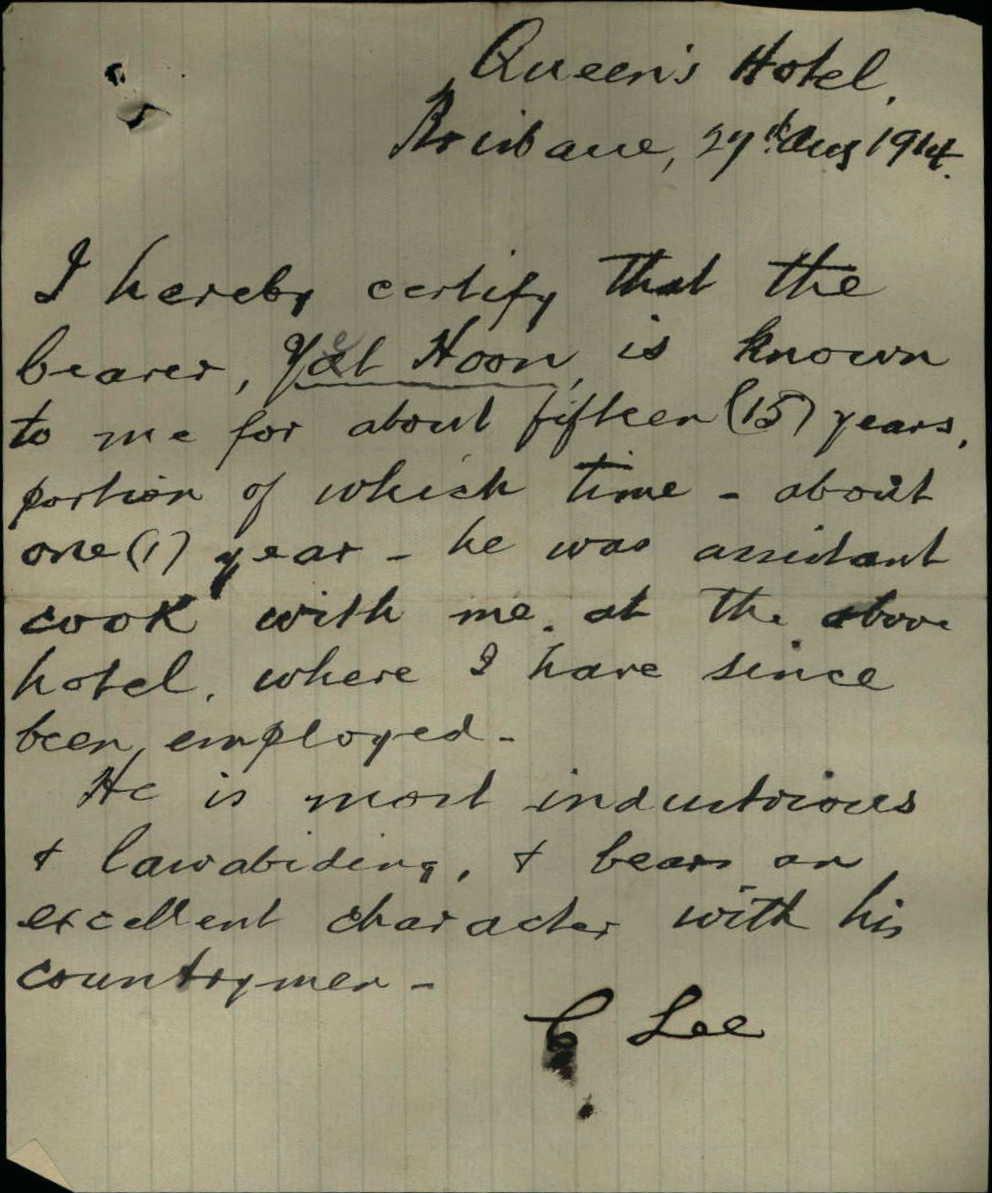 Queen's Hotel,
Brisbane, 27th Aug 1914.
I hereby certify that the
bearer, Yet Hoon, is known
to me for about fifteen (15) years,
portion of which time - about
one (1) year - he was assistant
cook with me at the above
hotel, where I have since
been employed -
He is most industrious
& lawabiding, & bears an
excellent character with his
countrymen -
C Lee